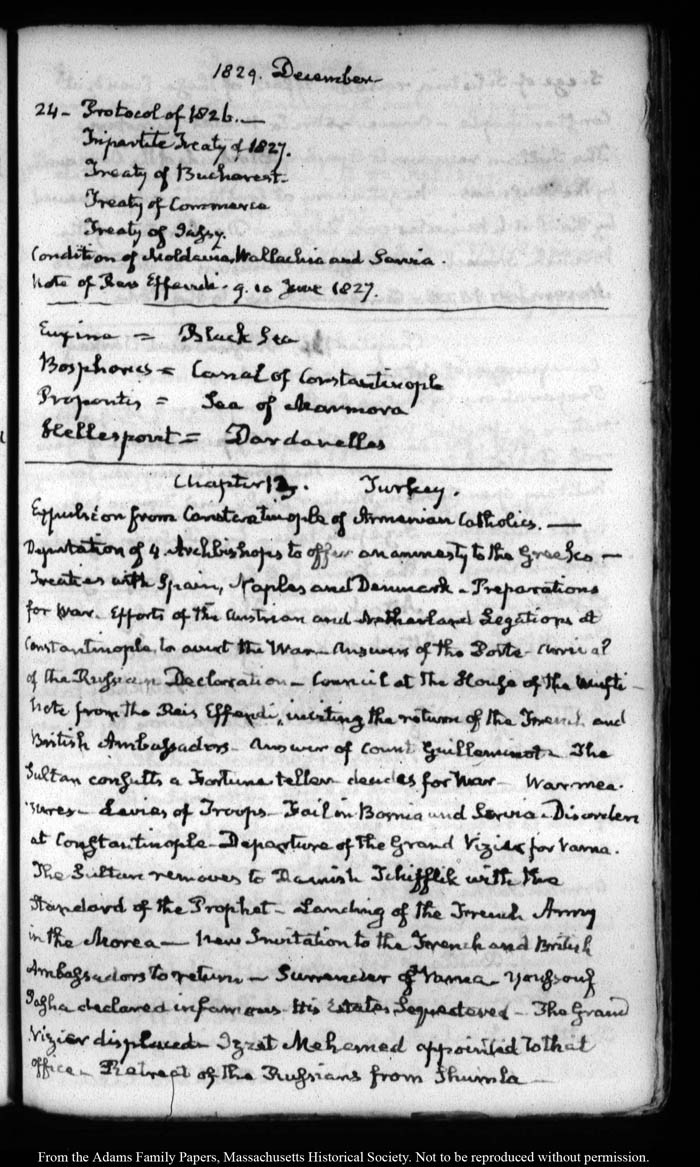 1829. December
24 - Protocol of 1826. —
Tripartite Treaty of 1827.
Treaty of Bucharest.
Treaty of Commerce
Treaty of Jassy.
Condition of Moldavia, Wallachia and Servia.
Note of Reis Effendi. 9. 10 June 1827.
Euxine = Black Sea
Bosphorus = Canal of Constantinople
Propontis = Sea of Marmora
Hellespont = Dardanelles
Chapter 13. Turkey.
Expulsion from Constantinople of Armenian Catholics. —
Deputation of 4 Archbishops to offer an amnesty to the Greeks —
Treaties with Spain, Naples and Denmark - Preparations
for War. Efforts of the Austrian and Netherland Legations at
Constantinople, to avert the War - Answer of the Porte - Arrival
of the Russian Declaration - Council at the House of the Mufti -
Note from the Reis Effendi, inviting the return of the French and
British Ambassadors - Answer of Count Guilleminot - The
Sultan consults a Fortune teller decides for War - War mea-
sures - Levies of Troops - Fail in Bosnia and Servia - Disorders
at Constantinople - Departure of the Grand Vizier for Varna.
The Sultan removes to Ramish Tchifflik with the
Standard of the Prophet - Landing of the French Army
in the Morea - New Invitation to the French and British
Ambassadors to return - Surrender of Varna - Youssouf
Pasha declared infamous. His Estates Sequestered - The Grand
Vizier displaced - Izzet Mehemed appointed to that
office - Retreat of the Russians from Shumla -
From the Adams Family Papers, Massachusetts Historical Society. Not to be reproduced without permission.